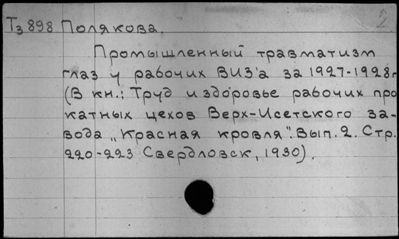 Тз 898 Полякова. 2
Промышленный травматизм
глаз у рабочих ВИЗ'а за 1927-1928г
(В кн.: Труд и здоровье рабочих про
катных цехов Верх-Исетского за-
вода „Красная кровля". Вып. 2. Стр.
220-223 Свердловск, 1930).